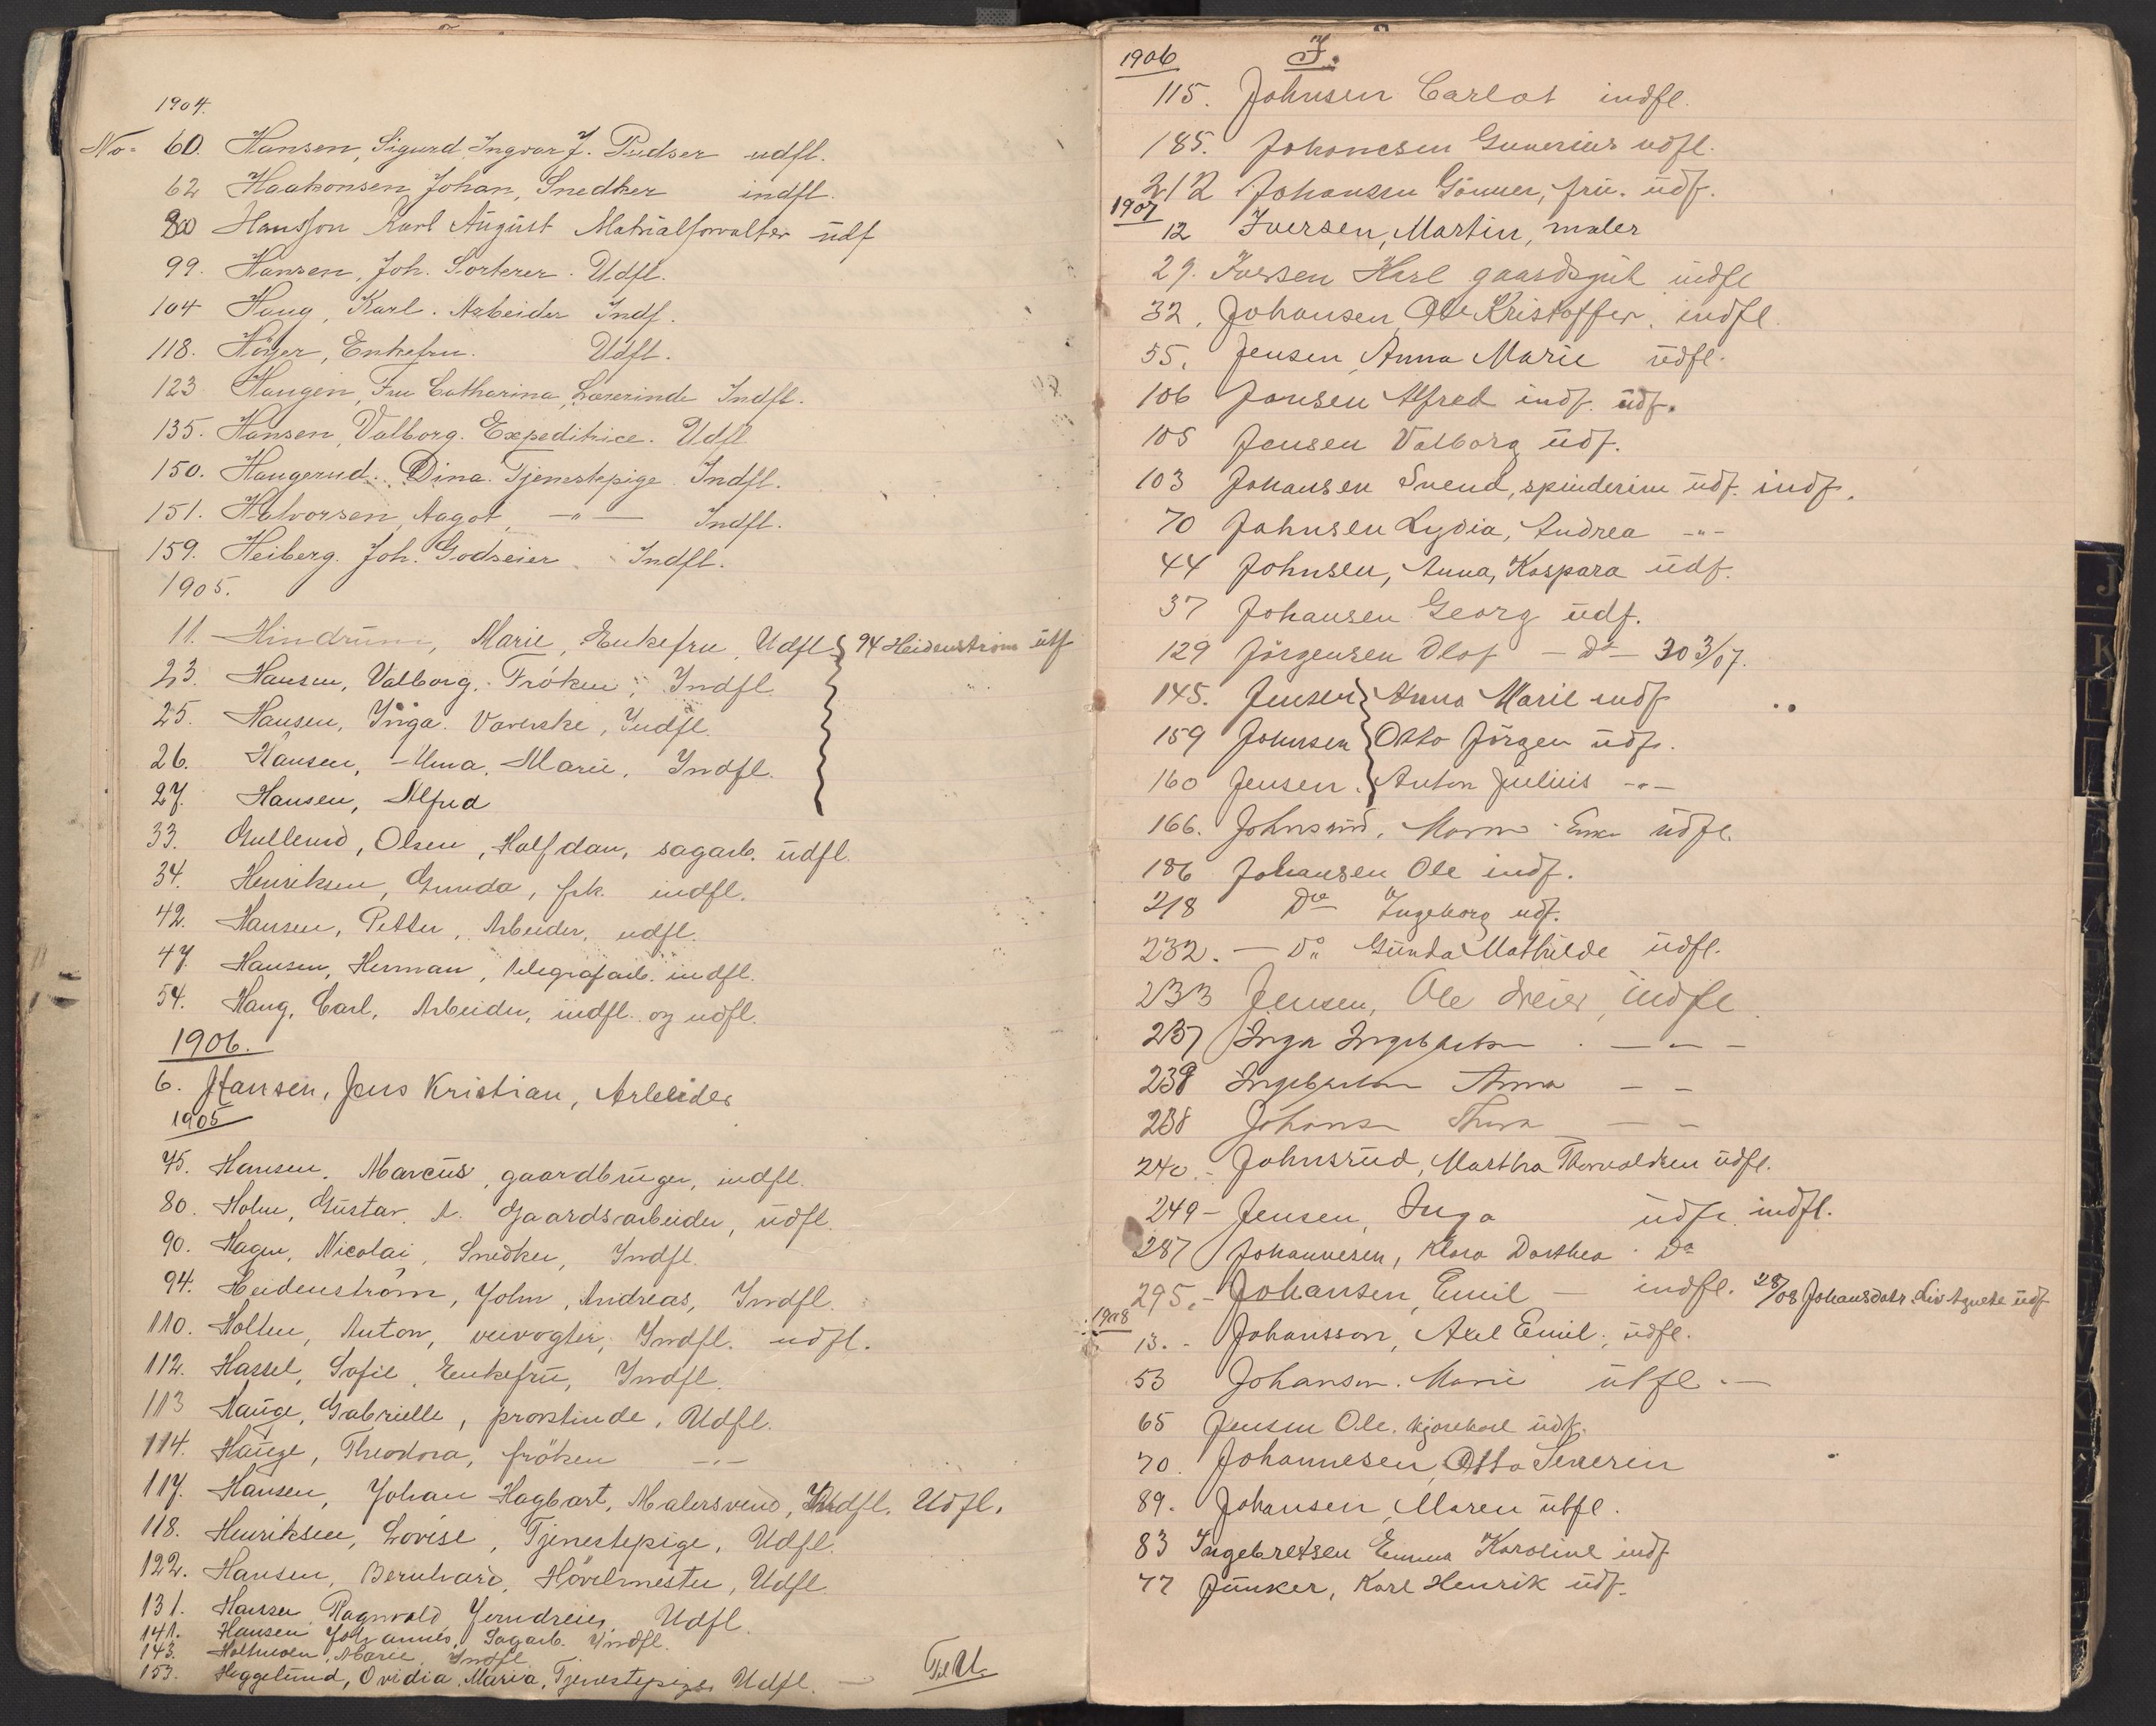 1904.
No. 60. Hansen, Sigurd Ingvar J. Pudser udfl.
62 Haakonsen, Johan, Snedker indfl.
80 Hansson Karl August Matrialforvalter udf
99. Hansen, Joh. Sorterer. Udfl.
104 Haug, Karl. Arbeider Indf.
118. Höyer, Enkefru. Udfl.
123 Haugen, Fru Catharina, Lærerinde Indfl.
135. Hansen, Valborg. Expeditrice. Udfl
150. Haugerud. Dina. Tjenestepige Indfl.
151. Halvorsen, Aagot, —"— Indfl.
159. Heiberg. Joh. Godseier Indfl.
1905.
11. Hindrum, Marie, Enkefru, Udfl. 94 Heidenstrøm utf
23. Hansen, Valborg, Fröken, Indfl.
25. Hansen, Inga. Væverske, Indfl.
26. Hansen, Anna, Marie, Indfl.
27. Hansen, Alfred
33. Gullerud, Olsen, Halfdan, sagarb. udfl.
34. Henriksen, Gunda, frk. indfl.
42. Hansen, Petter, Arbeider, udfl.
47. Hansen, Herman, telegrafarb. indfl.
54. Haug, Carl, Arbeider, indfl. og udfl.
1906.
6. Hansen, Jens Kristian, Arbeider
1905
75. Hansen, Marcus, gaardbruger, indfl.
80. Holm, Gustav A. Gaardsarbeider, udfl.
90. Hagen, Nicolai, Snedker, Indfl.
94. Heidenström, John, Andreas, Indfl.
110. Holten, Anton, veivogter, Indfl. udfl.
112. Hassel, Sofie, Enkefru, Indfl.
113 Hauge, Gabrielle, provstinde, Udfl.
114. Hauge, Theodora, fröken —"—
117. Hansen, Johan Hagbart, Malersvend, Indfl. Udfl.
118. Henriksen, Lovise, Tjenestepige, Udfl.
122. Hansen, Bernhard, Hövelmester, Udfl.
131. Hansen, Ragnvald Jerndreier, Udfl.
141. Hansen Johannes, Sagarb. Indfl.
143. Marie, Indfl.
153. Heggelund, Ovidia, Maria, Tjenestepige Udfl. —
1906 J.
115. Johnsen Carlot indfl.
185. Johanesen Gunerius udfl.
212 Johansen Gönner, fru. udf.
1907
12 Iversen, Martin, maler
29. Iversen Karl gaardsgut indfl
32. Johansen, Ole Kristoffer. indfl.
55. Jensen, Anna Marie udfl.
106 Jansen Alfred indf. udf.
105 Jensen Valborg udf.
103 Johansen Svend, spinderim udf. indf.
70 Johnsen Lydia, Andrea -"-
44 Johnsen, Anna, Kaspara udf.
37 Johansen Georg udf.
129 Jörgensen Olaf — Do — 30 3/07.
145. Jensen Anna Marie indf
159 Johnsen Otto Jörgen udf.
160 Jensen. Anton Julius -"-
166. Johnsrud, Enke udfl.
186 Johansen Ole indf.
218 Do Ingeborg udf.
232. — Do Gunda Mathilde udfl.
233 Jensen, Ole dreier, indfl
237 Inga Ingebretsen — " —
239 Ingebretsen Anna — —
238 Johansen Thora — —
240. - Johnsrud, Martha Thorvaldsen udfl.
249 - Jensen, Inga udfl. indfl.
287 Johannesen, Klara Dorthea. Do
295. - Johansen, Emil — indfl. 28/08 Johansdatr. Liv Agnete udf
1908
13. - Johansson, Axel Emil, udfl.
53 Johansen. Marie utfl. —
65 Jensen Ole. kjørekarl udf.
70. Johannesen, Otto Severin
89. Johansen, Maren utfl.
83 Ingebretsen Emma Karoline indf
77 Junker, Karl Henrik udf.